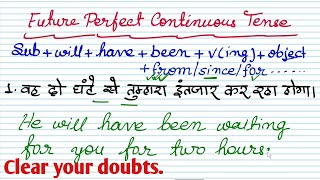 Future Perfect Continuous Tense
Sub + will + have + been + V(ing) + object
+ from/since/for ......
1. वह दो घंटे से तुम्हारा इंतजार कर रहा होगा।
He will have been waiting
for you for two hours.
Clear your doubts.